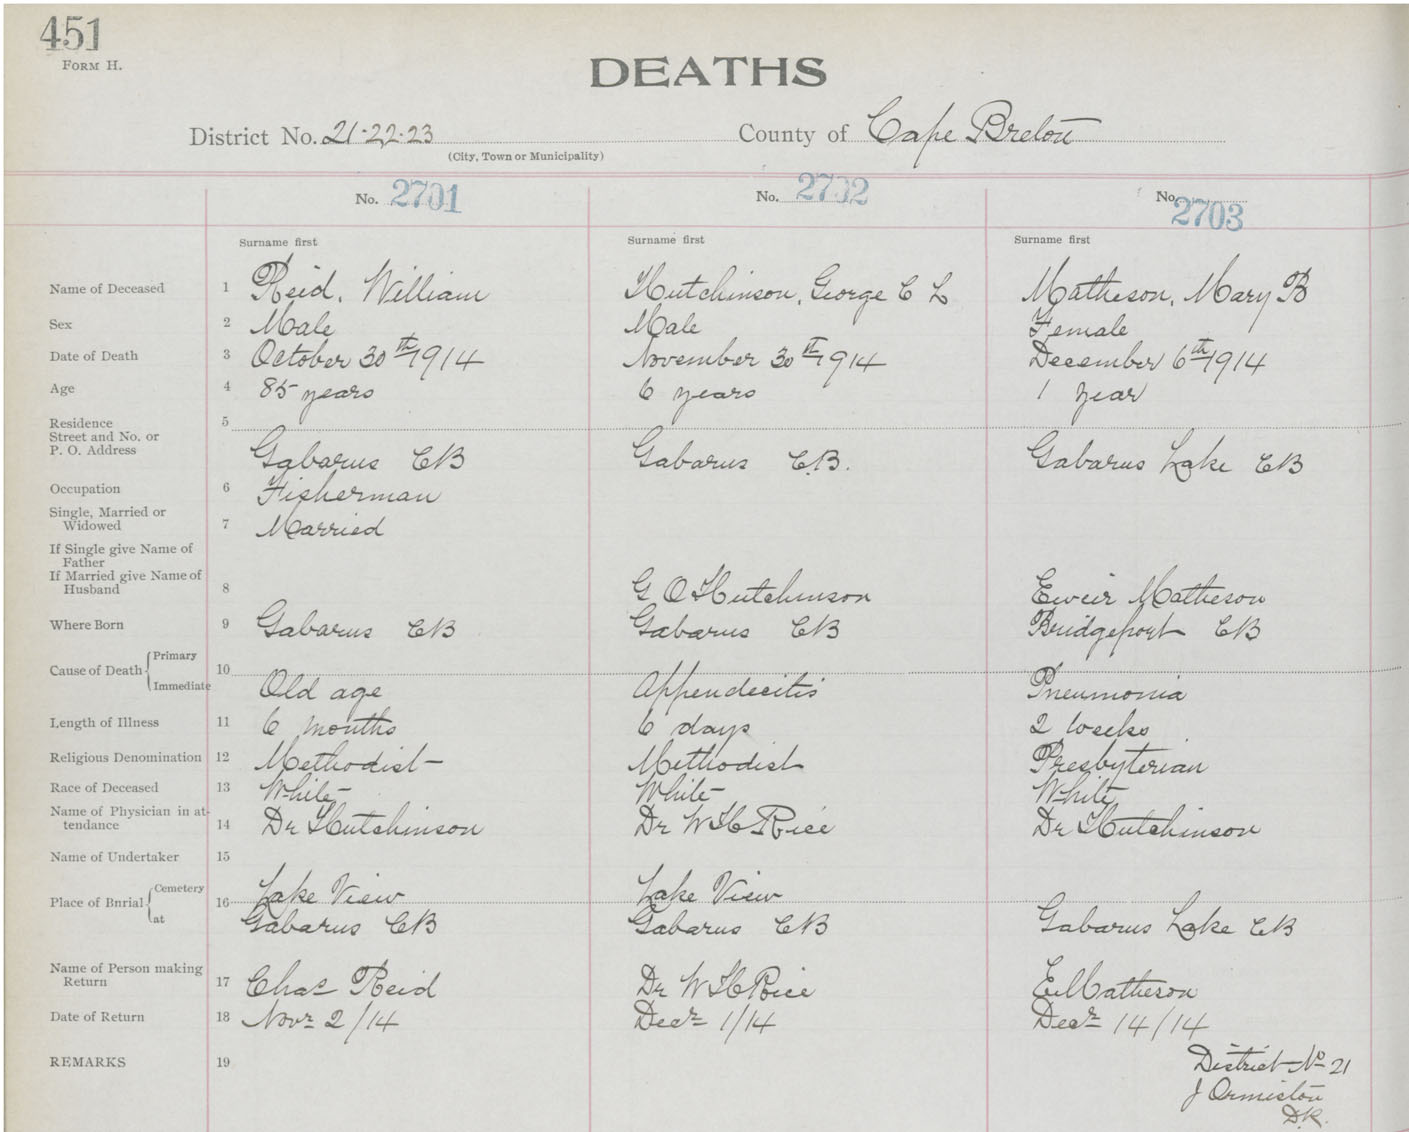 451
FORM H.
DEATHS
District No. 21-22-23 County of Cape Breton
(City, Town or Municipality)
No. 2701 No. 2702 No. 2703
Surname first Surname first Surname first
Name of Deceased 1 Reid, William Hutchinson, George C L Matheson, Mary B
Sex 2 Male Male Female
Date of Death 3 October 30th 1914 November 30th 1914 December 6th 1914
Age 4 85 years 6 years 1 year
Residence 5
Street and No. or
P. O. Address Gabarus CB Gabarus C.B. Gabarus Lake CB
Occupation 6 Fisherman
Single, Married or
Widowed 7 Married
If Single give Name of
Father
If Married give Name of
Husband 8 G O Hutchinson Matheson
Where Born 9 Gabarus CB Gabarus CB Bridgeport CB
Cause of Death Primary 10
Immediate Old age Appendecitis Pneumonia
Length of Illness 11 6 months 6 days 2 weeks
Religious Denomination 12 Methodist Methodist Presbyterian
Race of Deceased 13 White White White
Name of Physician in at-
tendance 14 Dr Hutchinson Dr W H Rice Dr Hutchinson
Name of Undertaker 15
Place of Bnrial Cemetery 16 Lake View Lake View
at Gabarus CB Gabarus CB Gabarus Lake CB
Name of Person making
Return 17 Chas Reid Dr W H Rice E Matheson
Date of Return 18 Novr 2/14 Decr 1/14 Decr 14/14
REMARKS 19 District No 21
J Ormiston
D.R.